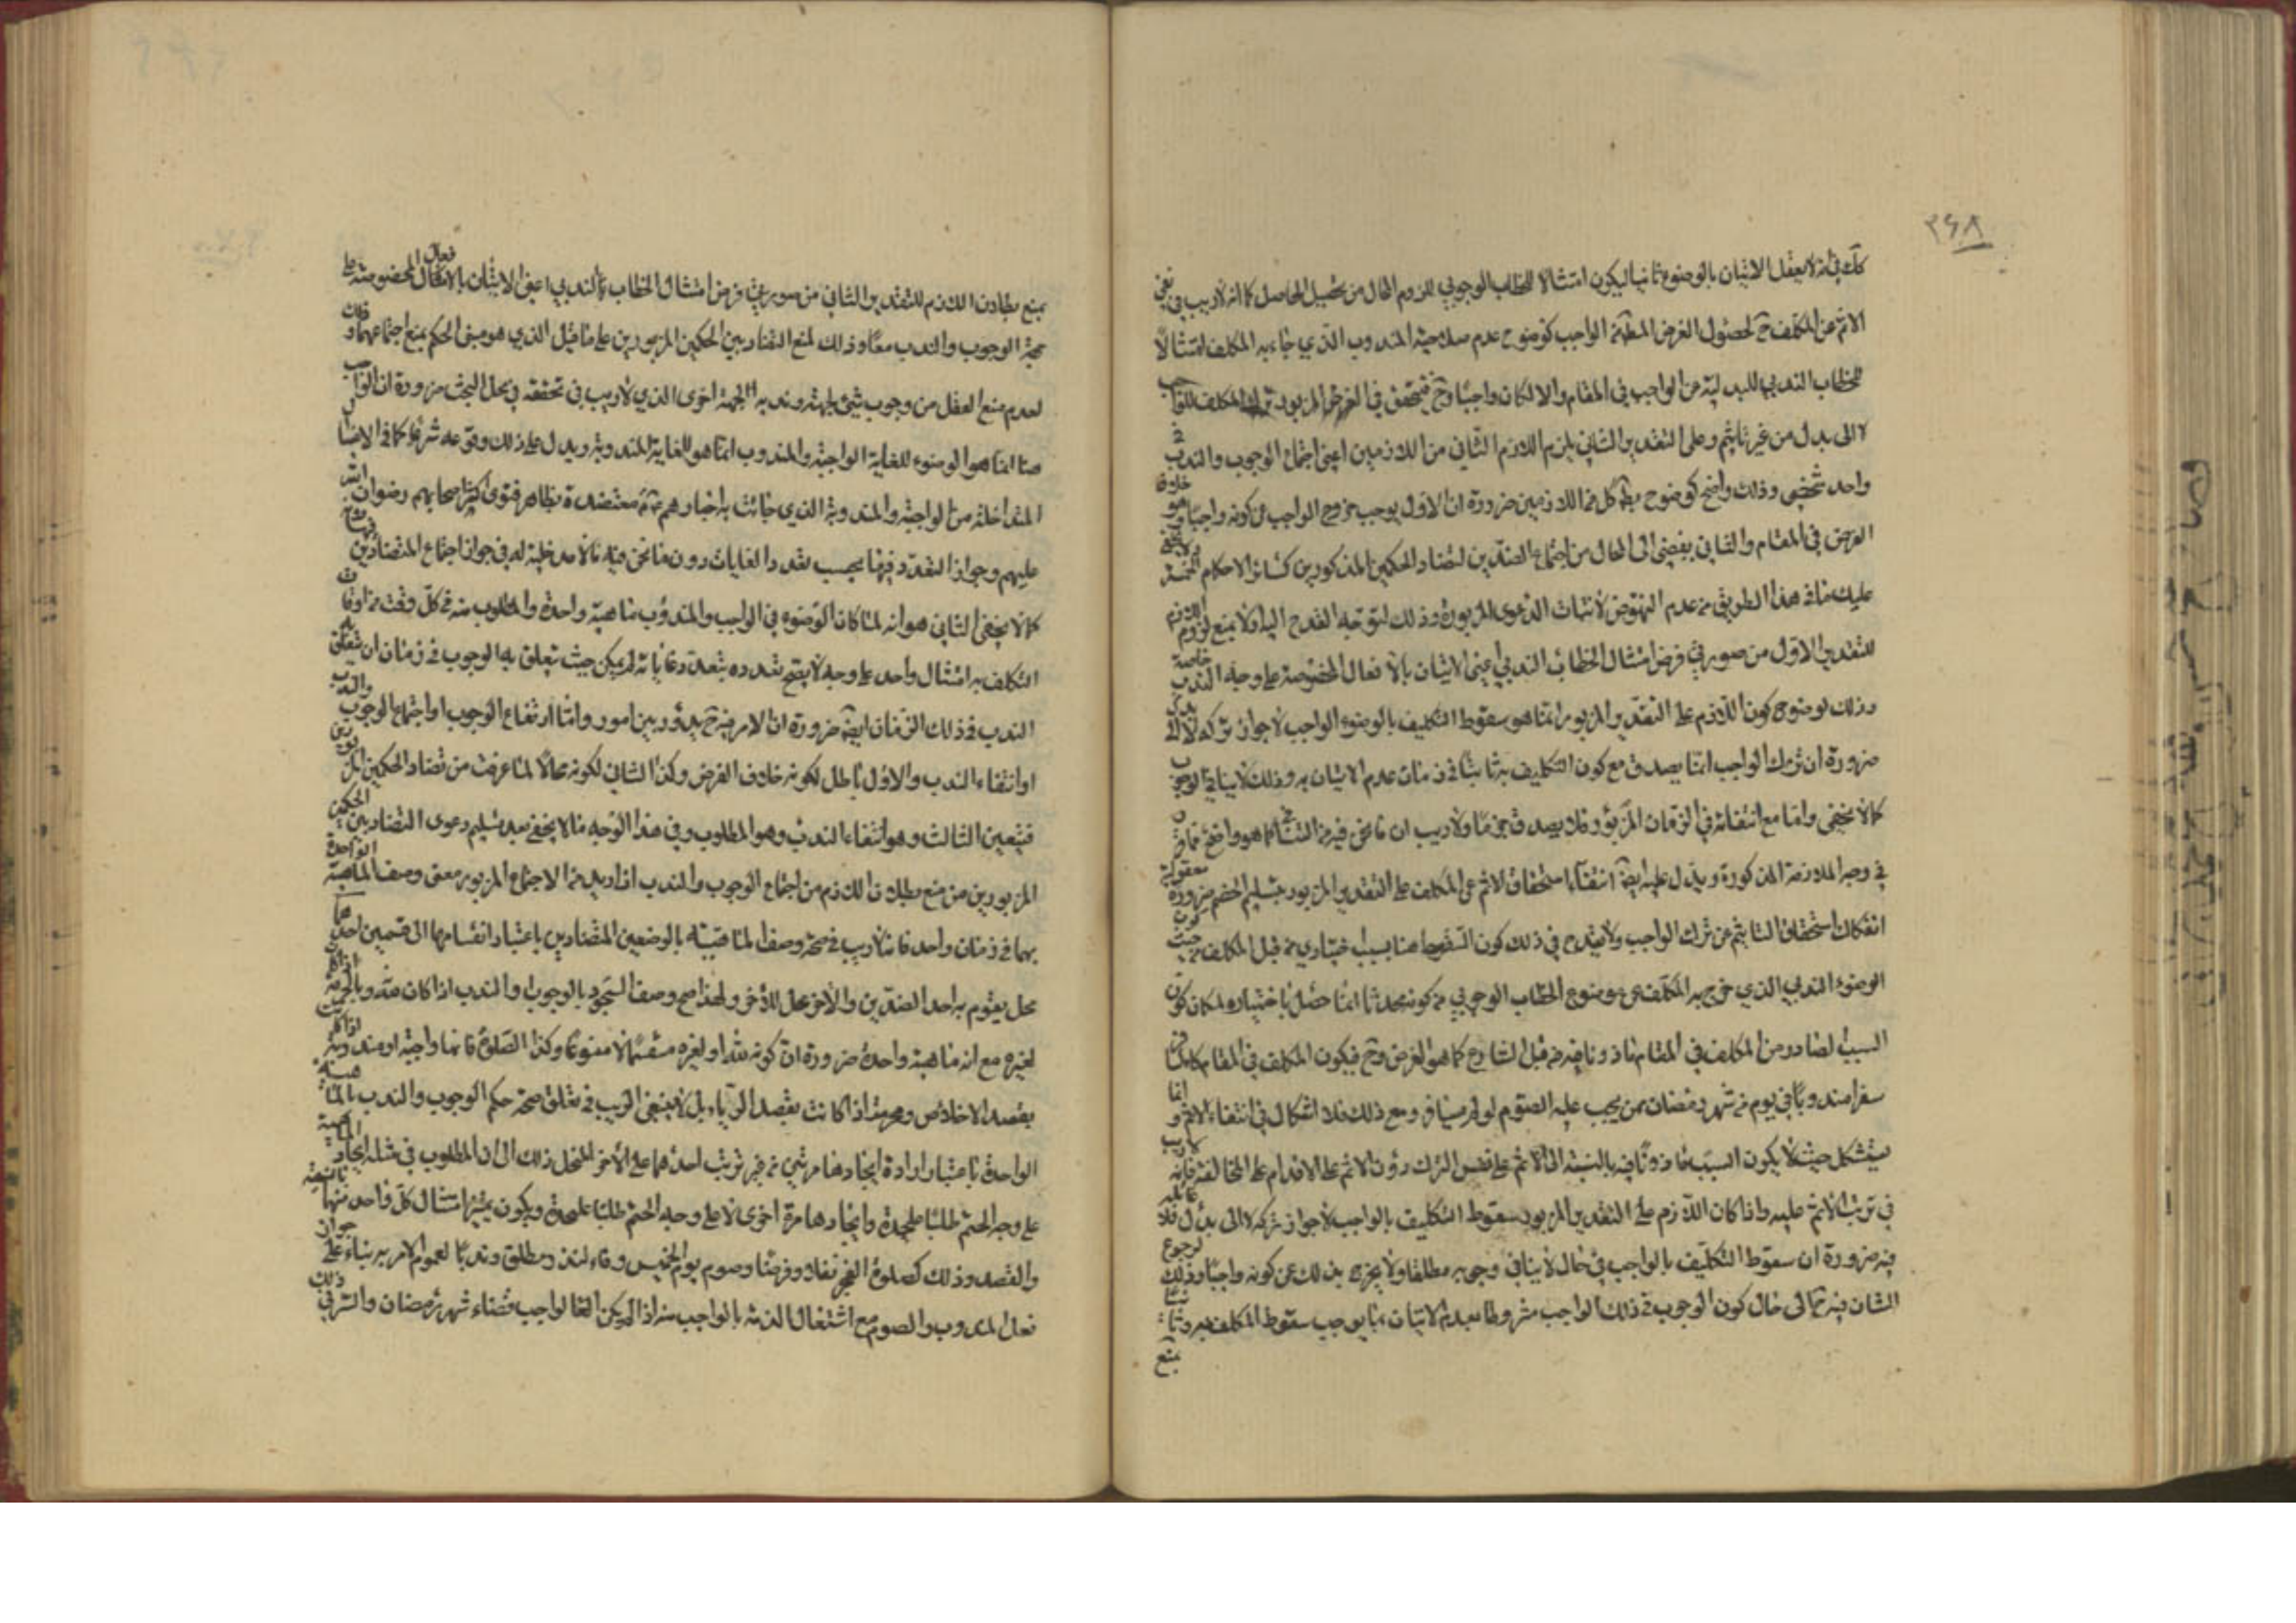 ٢٤٨
كك في انه لا يعقل الاتيان بالوضوء ثانيا ليكون امتثالا للخطاب الوجوبي للزوم المحال من تحصيل الحاصل كما انه لا ريب في نفي
الاثم عن المكلف ح لحصول الغرض المط من الواجب كوضوح عدم صلاحية المندوب الذي جاء به المكلف امتثالا
للخطاب الندبي للبدلية عن الواجب في المقام والا لكان واجبا وح فيتحقق في الفرض المزبور ترك المكلف للواجب
لا الى بدل من غير تاثيم وعلى التقدير الثاني يلزم اللازم الثاني من اللازمين اعني اجتماع الوجوب والندب في
واحد شخصي وذلك واضح كوضوح بط كل من اللازمين ضرورة ان الاول يوجب خروج الواجب عن كونه واجبا وهو خلاف
الفرض في المقام والثاني يفضي الى المحال من اجتماع الضدين لتضاد الحكمين المذكورين كسائر الاحكام الخمسة ولا يخفى
عليك ما في هذا الطريق من عدم النهوض لاثبات الدعوى المزبورة وذلك لتوجه القدح اليه اولا بمنع لزوم اللازم
للتقدير الاول من صورتي فرض امتثال الخطاب الندبي اعني الاتيان بالافعال المخصوصة على وجه الندب خاصة
وذلك لوضوح كون اللازم على التقدير المزبور انما هو سقوط التكليف بالوضوء الواجب لا جواز تركه لا الى بدل
ضرورة ان ترك الواجب انما يصدق مع كون التكليف به ثابتا في زمان عدم الاتيان به وذلك لا ينافي الوجوب
كما لا يخفى واما مع انتفائه في الزمان المزبور فلا يصدق جزما ولا ريب ان ما نحن فيه من الثاني كما هو واضح
في وجه الملازمة المذكورة ويدل عليه ايضا انتفاء استحقاق الاثم عن المكلف على التقدير المزبور بتسليم الخصم ضرورة معقولية
انفكاك استحقاق التاثيم عن ترك الواجب ولا يقدح في ذلك كون السقوط هنا بسبب اختياري من قبل المكلف من حيث كون
الوضوء الندبي الذي خرج به المكلف عن موضوع الخطاب الوجوبي من كونه محدثا انما حصل باختياره لمكان كون
السبب الصادر من المكلف في المقام ماذونا فيه من قبل الشارع كما هو الفرض وح فيكون المكلف في المقام كالمسافر
سفرا مندوبا في يوم من شهر رمضان ممن يجب عليه الصوم لو لم يسافر ومع ذلك فلا اشكال في انتفاء الاثم وانما
يستشكل حيث لا يكون السبب ماذونا فيه بالنسبة الى الاثم على نفس الترك دون الاثم على الاقدام على المخالفة فانه لا ريب
في ترتب الاثم عليه واذا كان اللازم على التقدير المزبور سقوط التكليف بالواجب لا جواز تركه لا الى بدل فلا غائلة
فيه ضرورة ان سقوط التكليف بالواجب في حال لا ينافي وجوبه مطلقا ولا يخرج بذلك عن كونه واجبا وذلك لرجوع
الشان فيه ح الى حال كون الوجوب في ذلك الواجب مشروطا بعدم الاتيان بما يوجب سقوط المكلف به وثانيا
بمنع
بمنع بطلان اللازم للتقدير الثاني من صورتي فرض امتثال الخطاب الندبي اعني الاتيان بالافعال المخصوصة على
جهة الوجوب والندب معا وذلك لمنع التضاد بين الحكمين المزبورين على ما قيل الذي هو مبنى الحكم بمنع اجتماعهما وذلك
لعدم منع العقل من وجوب شيء لجهة وندبه لجهة اخرى الذي لا ريب في تحققه في محل البحث ضرورة ان الواجب
هنا انما هو الوضوء للغاية الواجبة والمندوب انما هو للغاية المندوبة ويدل على ذلك وقوعه شرعا كما في الاغسال
المتداخلة من الواجبة والمندوبة الذي جائت به اخبارهم معتضدة بظاهر فتوى اكثر اصحابهم رضوان الله
عليهم وجواز التعدد فيها بحسب تعدد الغايات دون ما نحن فيه مما لا مدخلية له في جواز اجتماع المتضادين
كما لا يخفى الثاني هو انه لما كان الوضوء في الواجب والمندوب ماهية واحدة والمطلوب منه في كل وقت من اوقات
التكلف به امتثال واحد على وجه لا يصح تعدده بتعدد غاياته لم يكن حيث تعلق به الوجوب في زمان ان يتعلق به
الندب في ذلك الزمان ايضا ضرورة ان الامر فيه ح يدور بين امور واما ارتفاع الوجوب او اجتماع الوجوب والندب
او انتفاء الندب والاول باطل لكونه خلاف الفرض وكذا الثاني لكونه محالا لما عرفت من تضاد الحكمين المزبورين
فتعين الثالث وهو انتفاء الندب وهو المطلوب وفي هذا الوجه ما لا يخفى بعد تسليم دعوى التضاد بين الحكمين
المزبورين من منع بطلان اللازم من اجتماع الوجوب والندب اذا اريد من الاجتماع المزبور معنى وصف الماهية الواحدة
بهما في زمان واحد فانه لا ريب في صحة وصف الماهية بالوصفين المتضادين باعتبار انقسامها الى قسمين احدهما
محل يقوم به احد الضدين والاخر محل للاخر ولهذا صح وصف السجود بالوجوب والندب اذا كان لله وبالحرمة اذا كان
لغيره مع انه ماهية واحدة ضرورة ان كونه لله او لغيره منقسما لا منوعا وكذا الصلوة فانها واجبة او مندوبة اذا كانت
بقصد الاخلاص ومحرمة اذا كانت بقصد الرياء بل لا ينبغي الريب في تعلق صحة حكم الوجوب والندب بالماهية
الواحدة باعتبار ارادة ايجادها مرتين من غير ترتب احدهما على الاخر لنحل ذلك الى ان المطلوب في مثله ايجاد الماهية
على وجه الحتم طلبا علىحدة وايجادها مرة اخرى لا على وجه الحتم طلبا علىحدة ويكون تميز امتثال كل واحد منهما بالنية
والقصد وذلك كصلوة الفجر نفلا وفرضا وصوم يوم الخميس وفاء لنذر مطلق وندبا لعموم الامر به بناء على جواز
فعل المندوب والصوم مع اشتغال الذمة بالواجب منه اذا لم يكن الواجب قضاء شهر رمضان والسر في ذلك